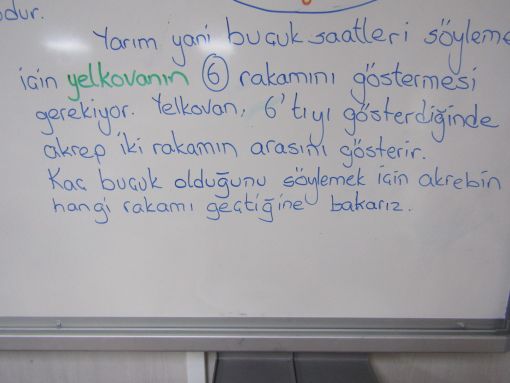 udur.
Yarım yani buçuk saatleri söyleme
için yelkovanın 6 rakamını göstermesi
gerekiyor. Yelkovan, 6'tıyı gösterdiğinde
akrep iki rakamın arasını gösterir.
Kaç buçuk olduğunu söylemek için akrebin
hangi rakamı geçtiğine bakarız.